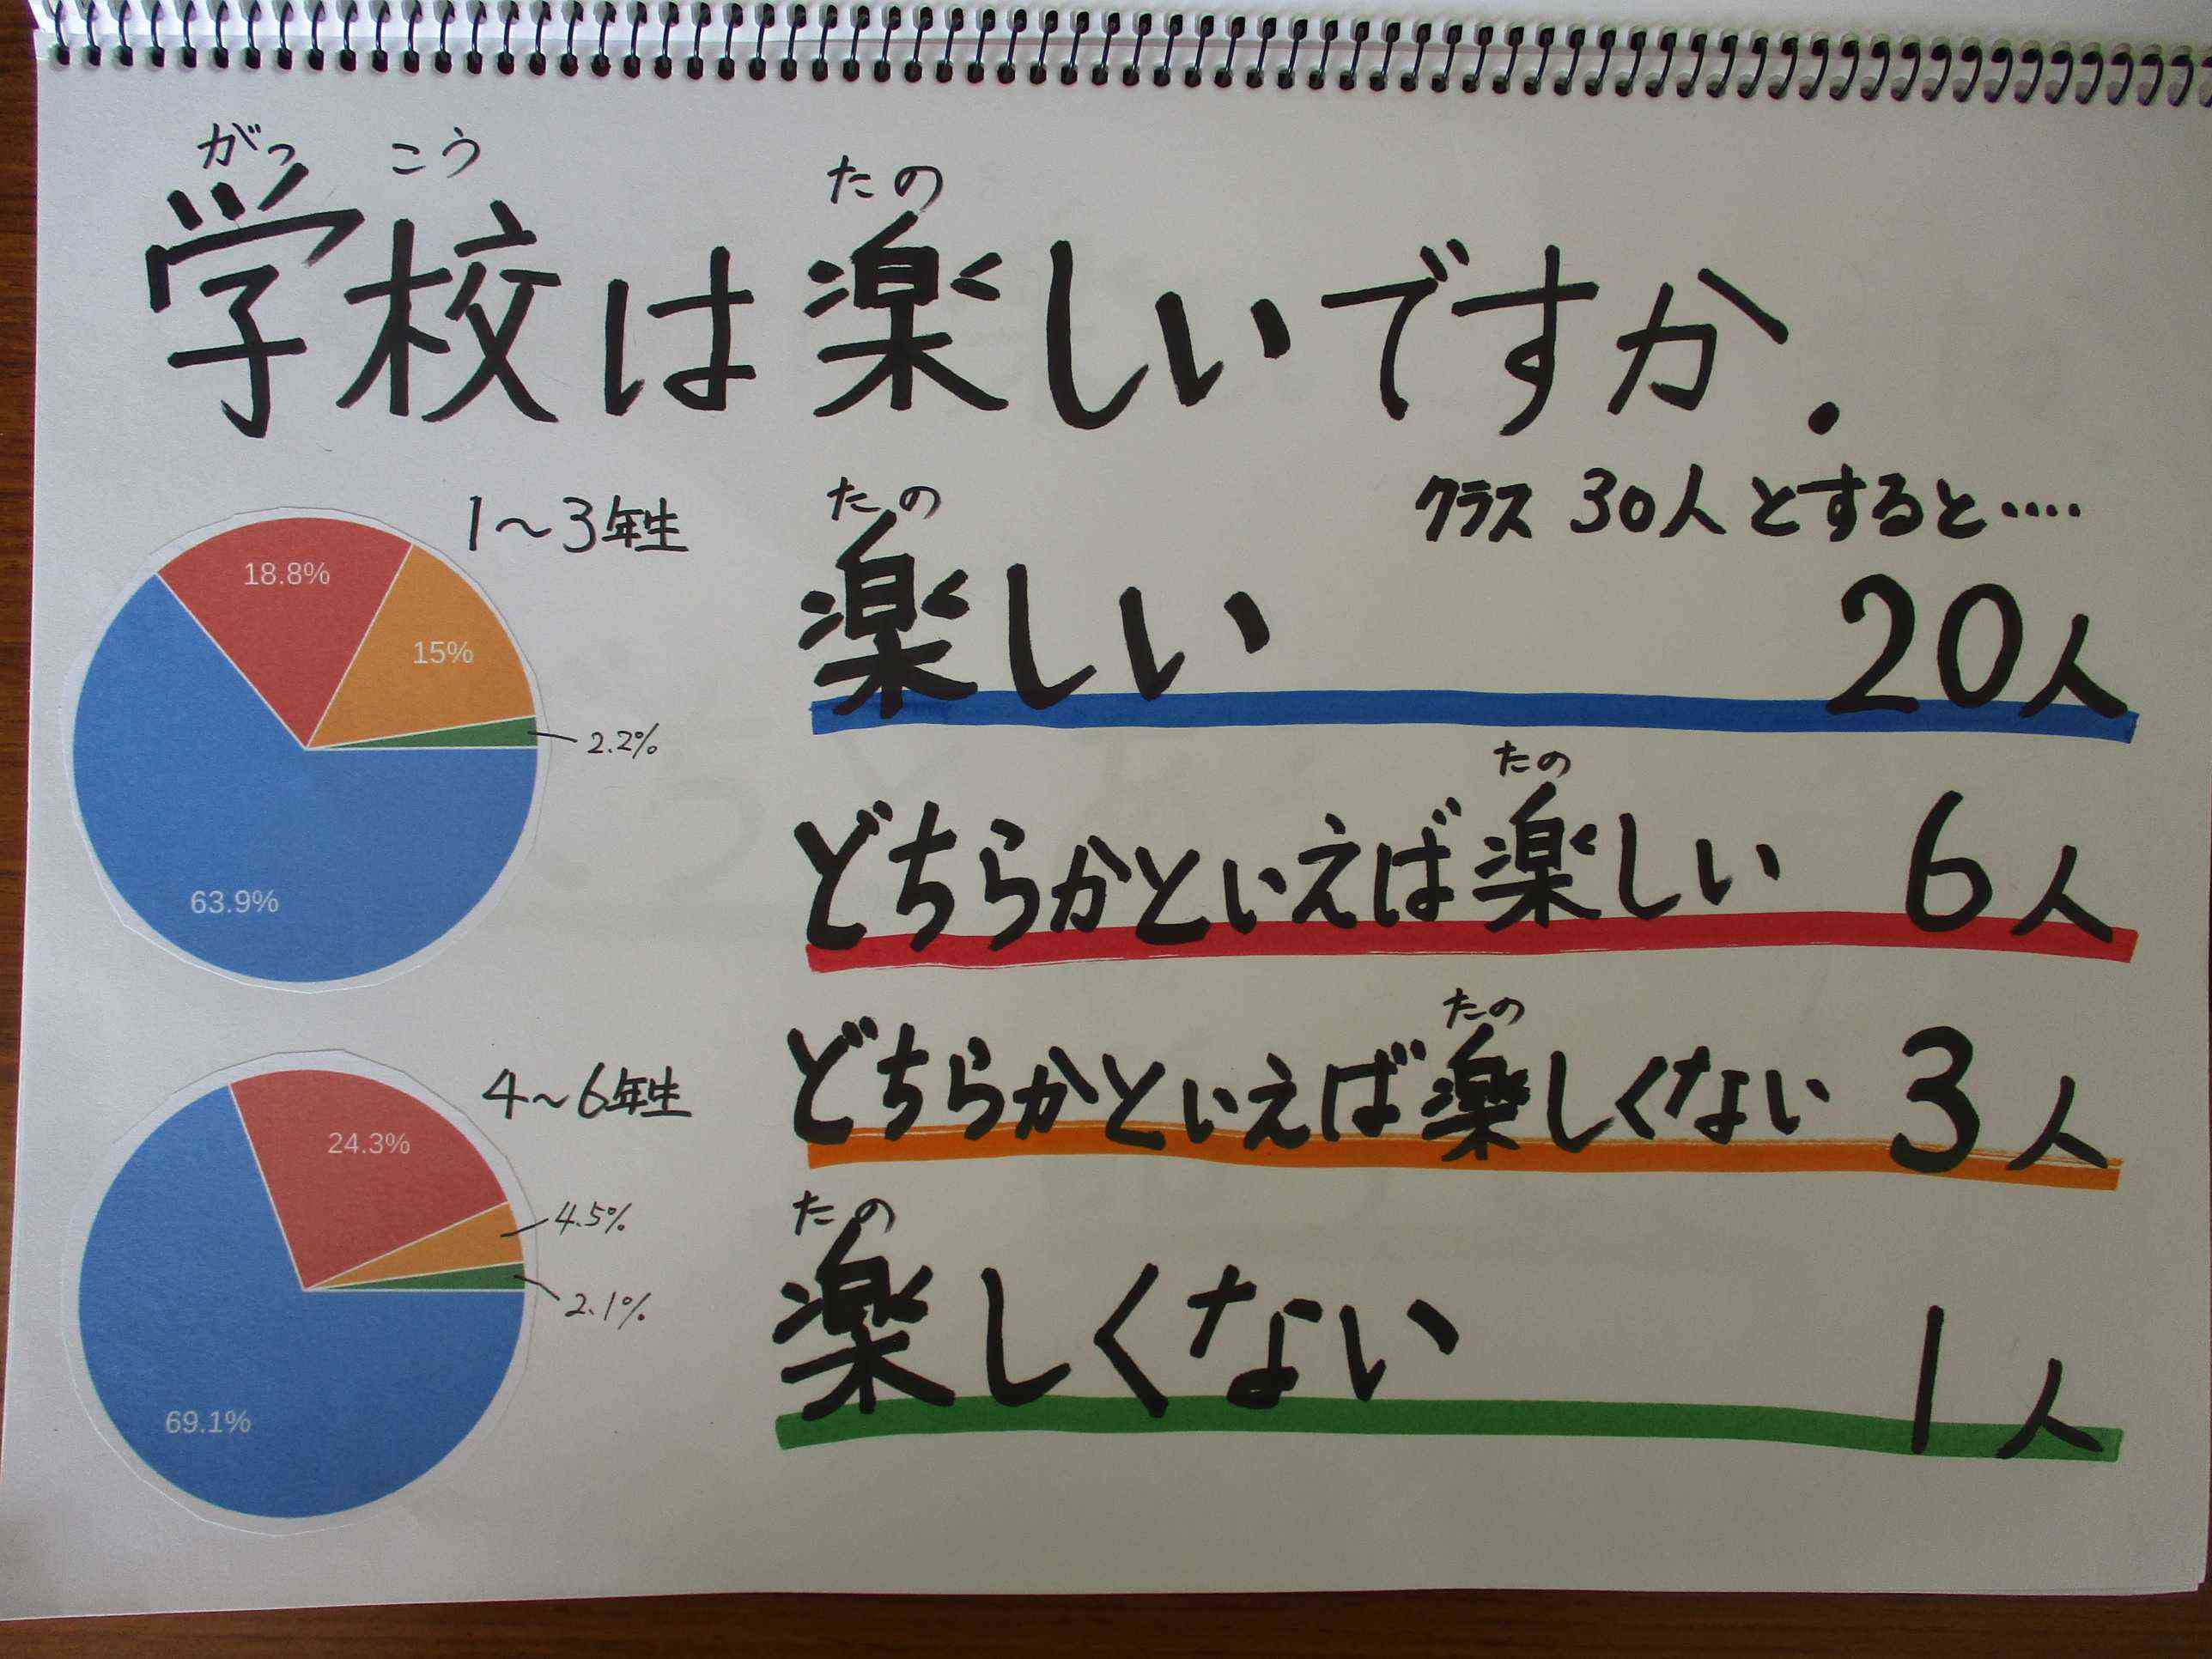 がっこう
学校は楽しいですか.
たの
クラス 30人とすると‥‥
1～3年生
18.8%
15%
2.2%
63.9%
たの
楽しい 20人
たの
どちらかといえば楽しい 6人
たの
どちらかといえば楽しくない 3人
たの
楽しくない 1人
4～6年生
24.3%
4.5%
2.1%
69.1%